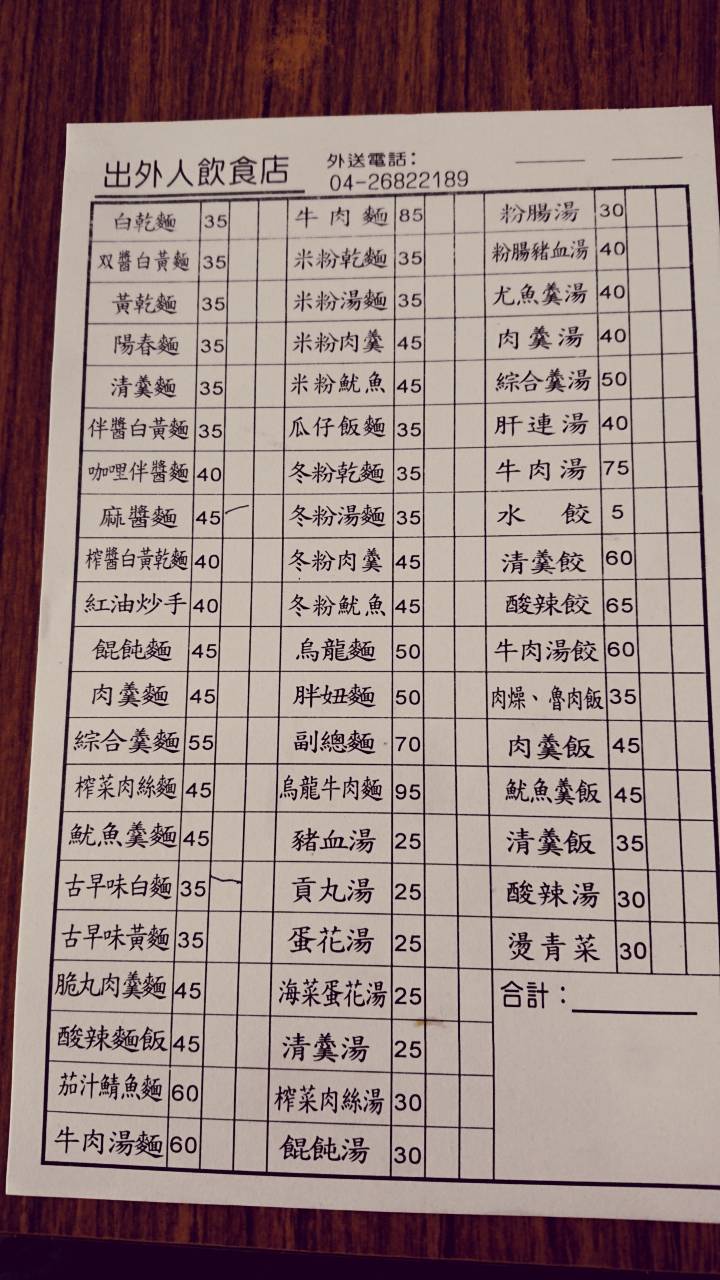 出外人飲食店
外送電話：
04-26822189
白乾麵 35
双醬白黃麵 35
黃乾麵 35
陽春麵 35
清羹麵 35
伴醬白黃麵 35
咖哩伴醬麵 40
麻醬麵 45
榨醬白黃乾麵 40
紅油炒手 40
餛飩麵 45
肉羹麵 45
綜合羹麵 55
榨菜肉絲麵 45
魷魚羹麵 45
古早味白麵 35
古早味黃麵 35
脆丸肉羹麵 45
酸辣麵飯 45
茄汁鯖魚麵 60
牛肉湯麵 60
牛肉麵 85
米粉乾麵 35
米粉湯麵 35
米粉肉羹 45
米粉魷魚 45
瓜仔飯麵 35
冬粉乾麵 35
冬粉湯麵 35
冬粉肉羹 45
冬粉魷魚 45
烏龍麵 50
胖妞麵 50
副總麵 70
烏龍牛肉麵 95
豬血湯 25
貢丸湯 25
蛋花湯 25
海菜蛋花湯 25
清羹湯 25
榨菜肉絲湯 30
餛飩湯 30
粉腸湯 30
粉腸豬血湯 40
尤魚羹湯 40
肉羹湯 40
綜合羹湯 50
肝連湯 40
牛肉湯 75
水餃 5
清羹餃 60
酸辣餃 65
牛肉湯餃 60
肉燥、魯肉飯 35
肉羹飯 45
魷魚羹飯 45
清羹飯 35
酸辣湯 30
燙青菜 30
合計：